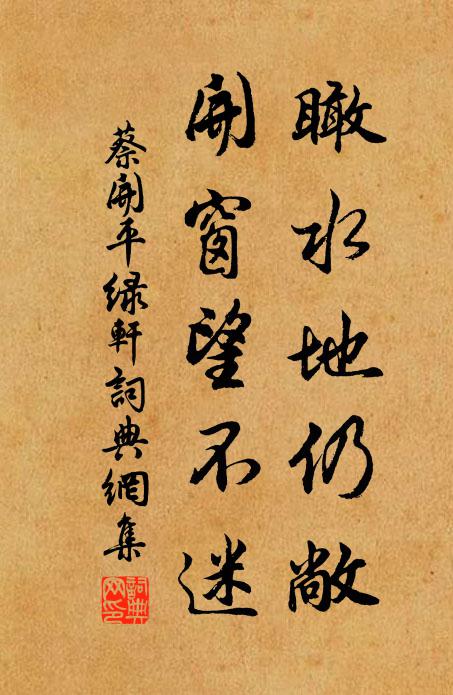 瞰水地仍敞
開窗望不迷
蔡開平綠軒詞典網集
詞典
网印